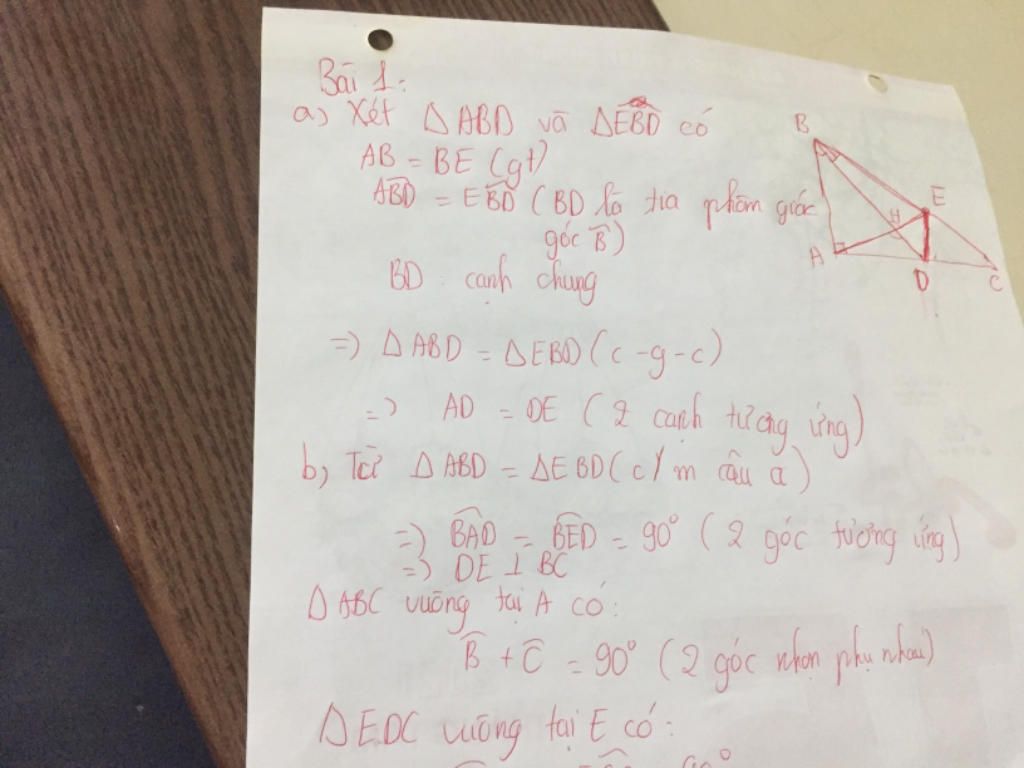 Bài 1:
a) Xét △ABD và △EBD có
AB = BE (gt)
ABD̂ = EBD̂ (BD là tia phâm giác
góc B̂)
BD cạnh chung
=> △ABD = △EBD (c-g-c)
=> AD = DE (2 cạnh tương ứng)
b, Từ △ABD = △EBD (c/m câu a)
=> BAD̂ = BED̂ = 90° (2 góc tương ứng)
=> DE ⊥ BC
△ABC vuông tại A có:
B̂ + Ĉ = 90° (2 góc nhọn phụ nhau)
△EDC vuông tại E có:
B
E
H
A
D
C